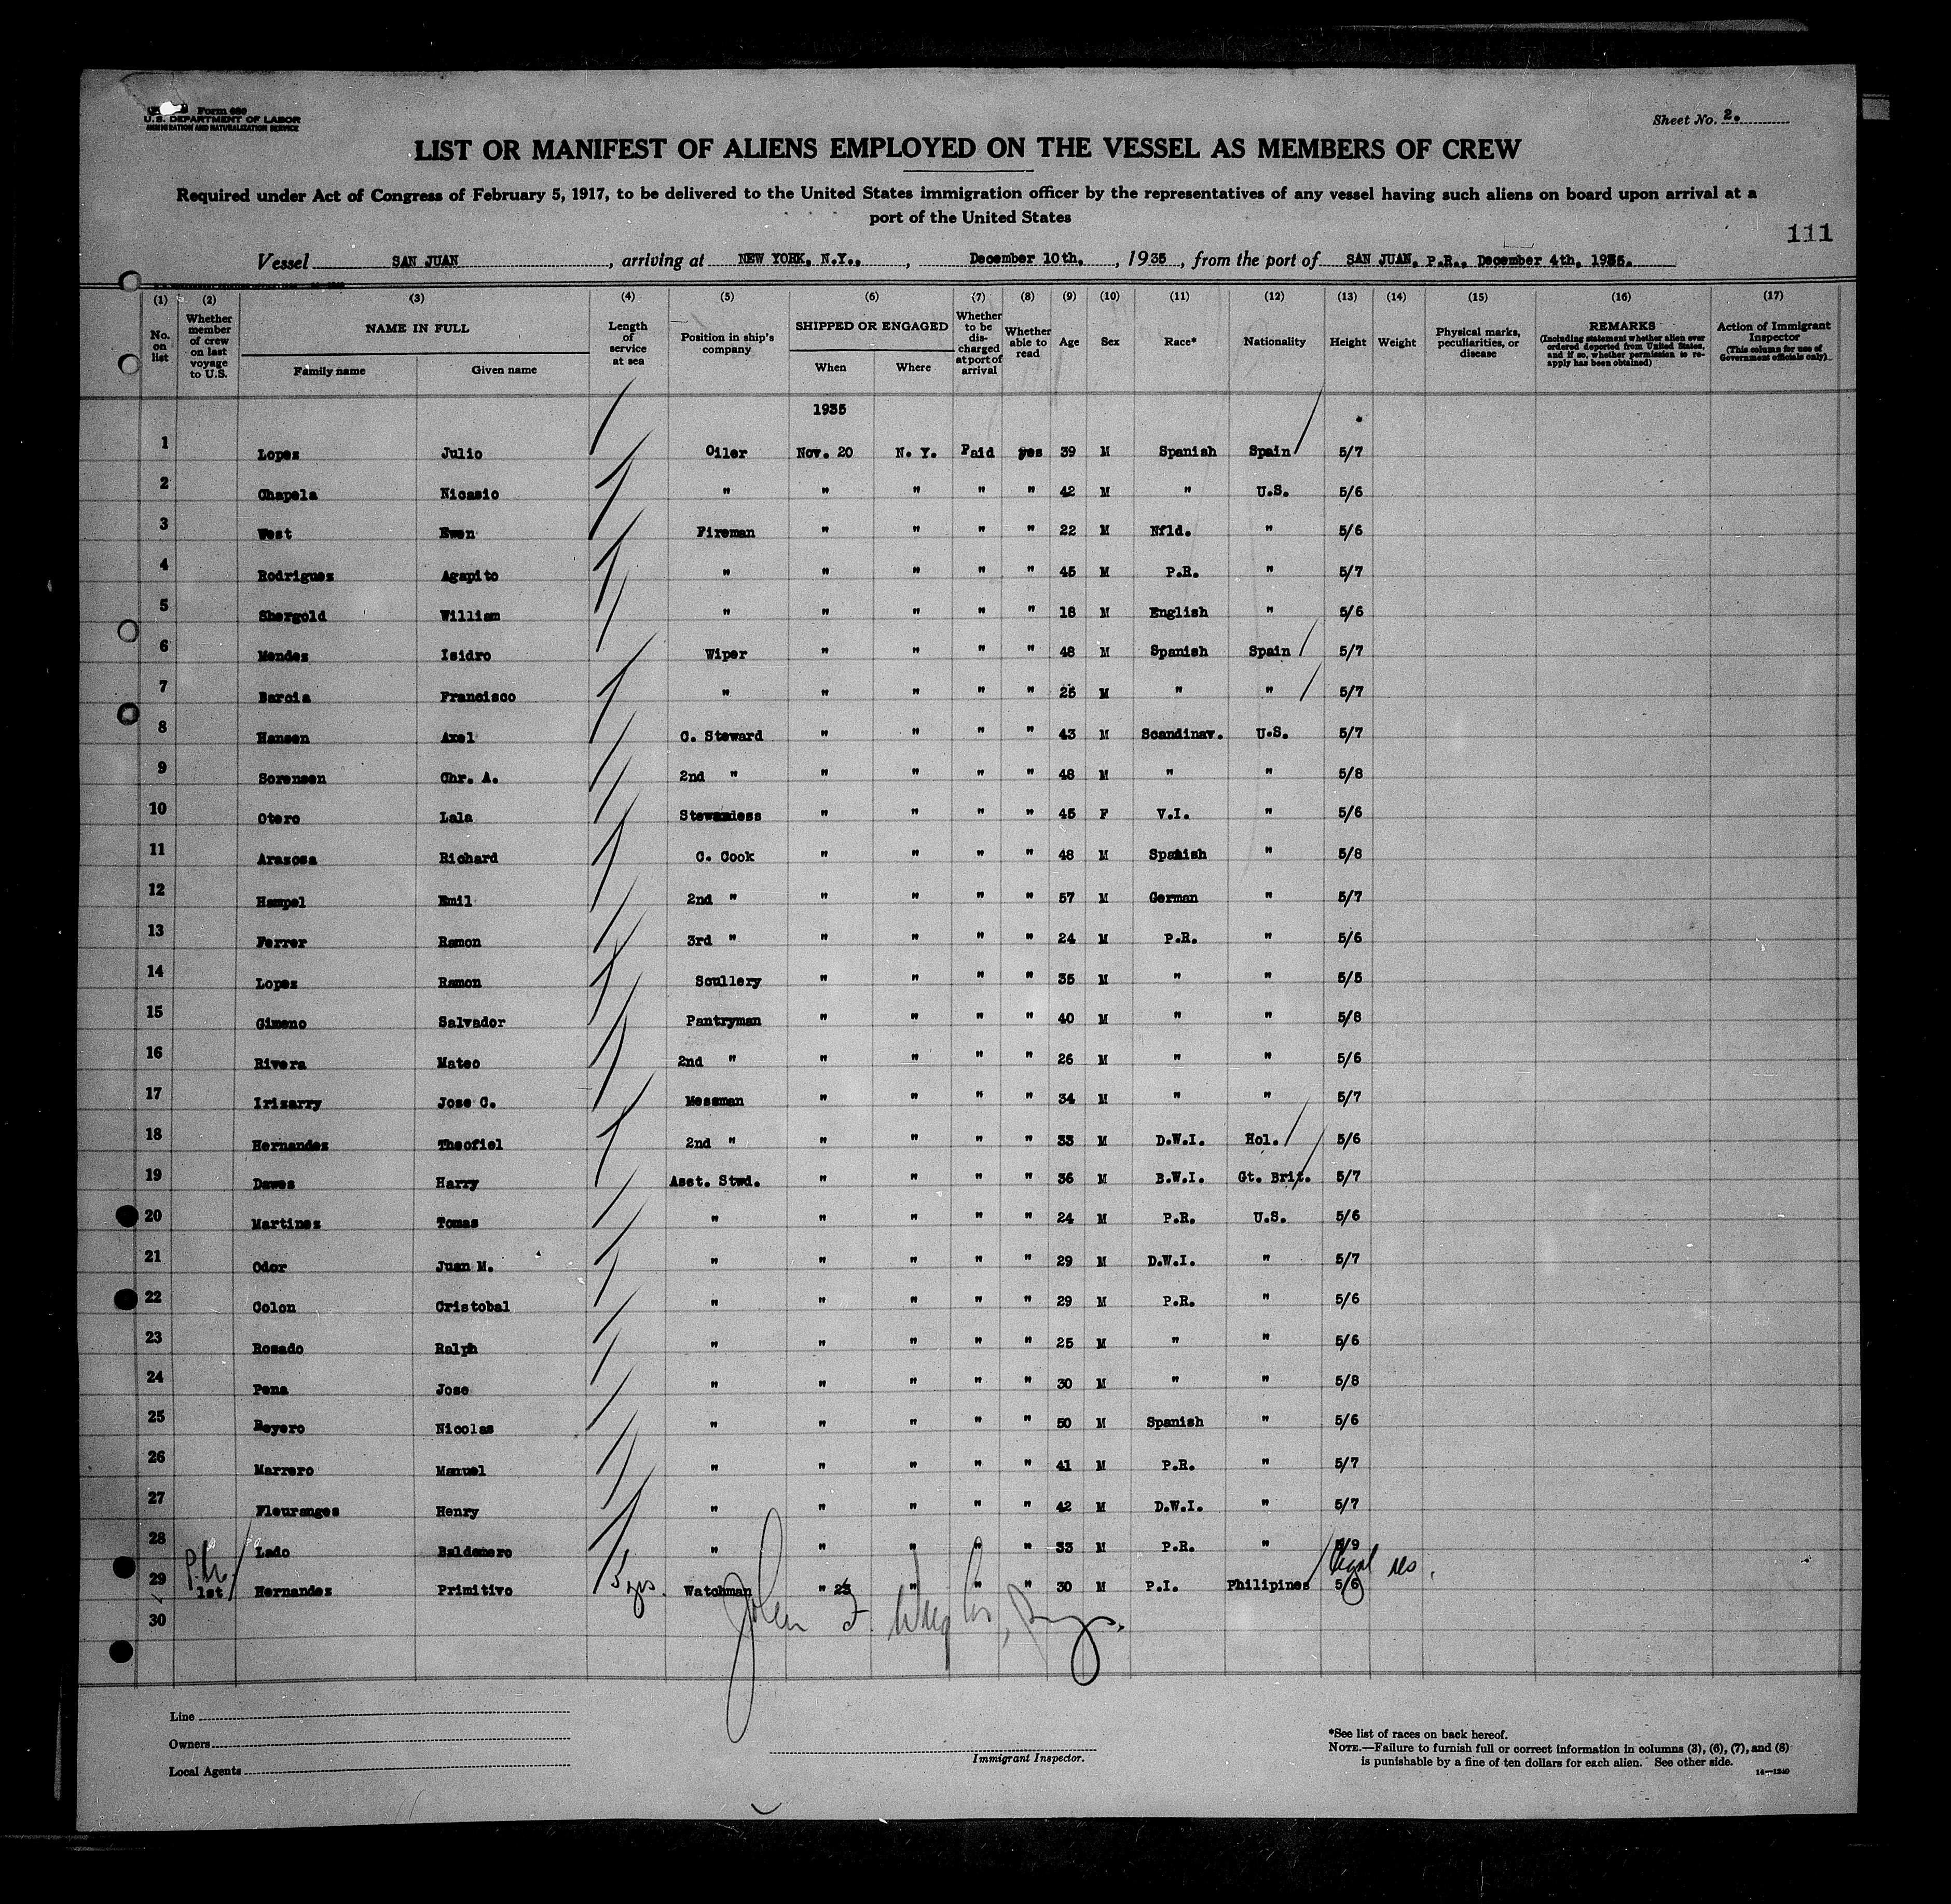 Form 680
U.S. DEPARTMENT OF LABOR
IMMIGRATION AND NATURALIZATION SERVICE
Sheet No. 2.
LIST OR MANIFEST OF ALIENS EMPLOYED ON THE VESSEL AS MEMBERS OF CREW
Required under Act of Congress of February 5, 1917, to be delivered to the United States immigration officer by the representatives of any vessel having such aliens on board upon arrival at a
port of the United States
111
Vessel SAN JUAN, arriving at NEW YORK, N.Y., , December 10th, , 1935, from the port of SAN JUAN, P.R., December 4th, 1935.
(1) (2) (3) (4) (5) (6) (7) (8) (9) (10) (11) (12) (13) (14) (15) (16) (17)
No. on list
Whether member of crew on last voyage to U.S.
NAME IN FULL
Family name Given name
Length of service at sea
Position in ship's company
SHIPPED OR ENGAGED
When Where
Whether to be discharged at port of arrival
Whether able to read
Age
Sex
Race*
Nationality
Height
Weight
Physical marks, peculiarities, or disease
REMARKS
(Including statement whether alien ever ordered deported from United States, and if so, whether permission to re-apply has been obtained)
Action of Immigrant Inspector
(This column for use of Government officials only)
1935
1 Lopez Julio Oiler Nov. 20 N. Y. Paid yes 39 M Spanish Spain 5/7
2 Chapela Nicasio " " " " " 42 M " U.S. 5/6
3 West Ewen Fireman " " " " 22 M Nfld. " 5/6
4 Rodriguez Agapito " " " " " 45 M P.R. " 5/7
5 Shergold William " " " " " 18 M English " 5/6
6 Mendez Isidro Wiper " " " " 48 M Spanish Spain 5/7
7 Barcia Francisco " " " " " 25 M " " 5/7
8 Hansen Axel C. Steward " " " " 43 M Scandinav. U.S. 5/7
9 Sorensen Chr. A. 2nd " " " " " 48 M " " 5/8
10 Otero Lala Stewardess " " " " 45 F V.I. " 5/6
11 Arazosa Richard C. Cook " " " " 48 M Spanish " 5/8
12 Hampel Emil 2nd " " " " " 57 M German " 5/7
13 Ferrer Ramon 3rd " " " " " 24 M P.R. " 5/6
14 Lopez Ramon Scullery " " " " 35 M " " 5/5
15 Gimeno Salvador Pantryman " " " " 40 M " " 5/8
16 Rivera Mateo 2nd " " " " " 26 M " " 5/6
17 Irizarry Jose C. Messman " " " " 34 M " " 5/7
18 Hernandez Theofiel 2nd " " " " " 33 M D.W.I. Hol. 5/6
19 Dawes Harry Asst. Stwd. " " " " 36 M B.W.I. Gt. Brit. 5/7
20 Martinez Tomas " " " " " 24 M P.R. U.S. 5/6
21 Odor Juan M. " " " " " 29 M D.W.I. " 5/7
22 Colon Cristobal " " " " " 29 M P.R. " 5/6
23 Rosado Ralph " " " " " 25 M " " 5/6
24 Pena Jose " " " " " 30 M " " 5/8
25 Reyero Nicolas " " " " " 50 M Spanish " 5/6
26 Marrero Manuel " " " " " 41 M P.R. " 5/7
27 Fleuranges Henry " " " " " 42 M D.W.I. " 5/7
28 Lado Baldomero " " " " " 33 M P.R. " 5/9
29 1st Hernandez Primitivo 5 yrs. Watchman " 23 " " " 30 M P.I. Philipines 5/6 legal res.
30
Line
Owners
Local Agents
Immigrant Inspector.
*See list of races on back hereof.
NOTE.—Failure to furnish full or correct information in columns (3), (6), (7), and (8)
is punishable by a fine of ten dollars for each alien. See other side.
14—1240